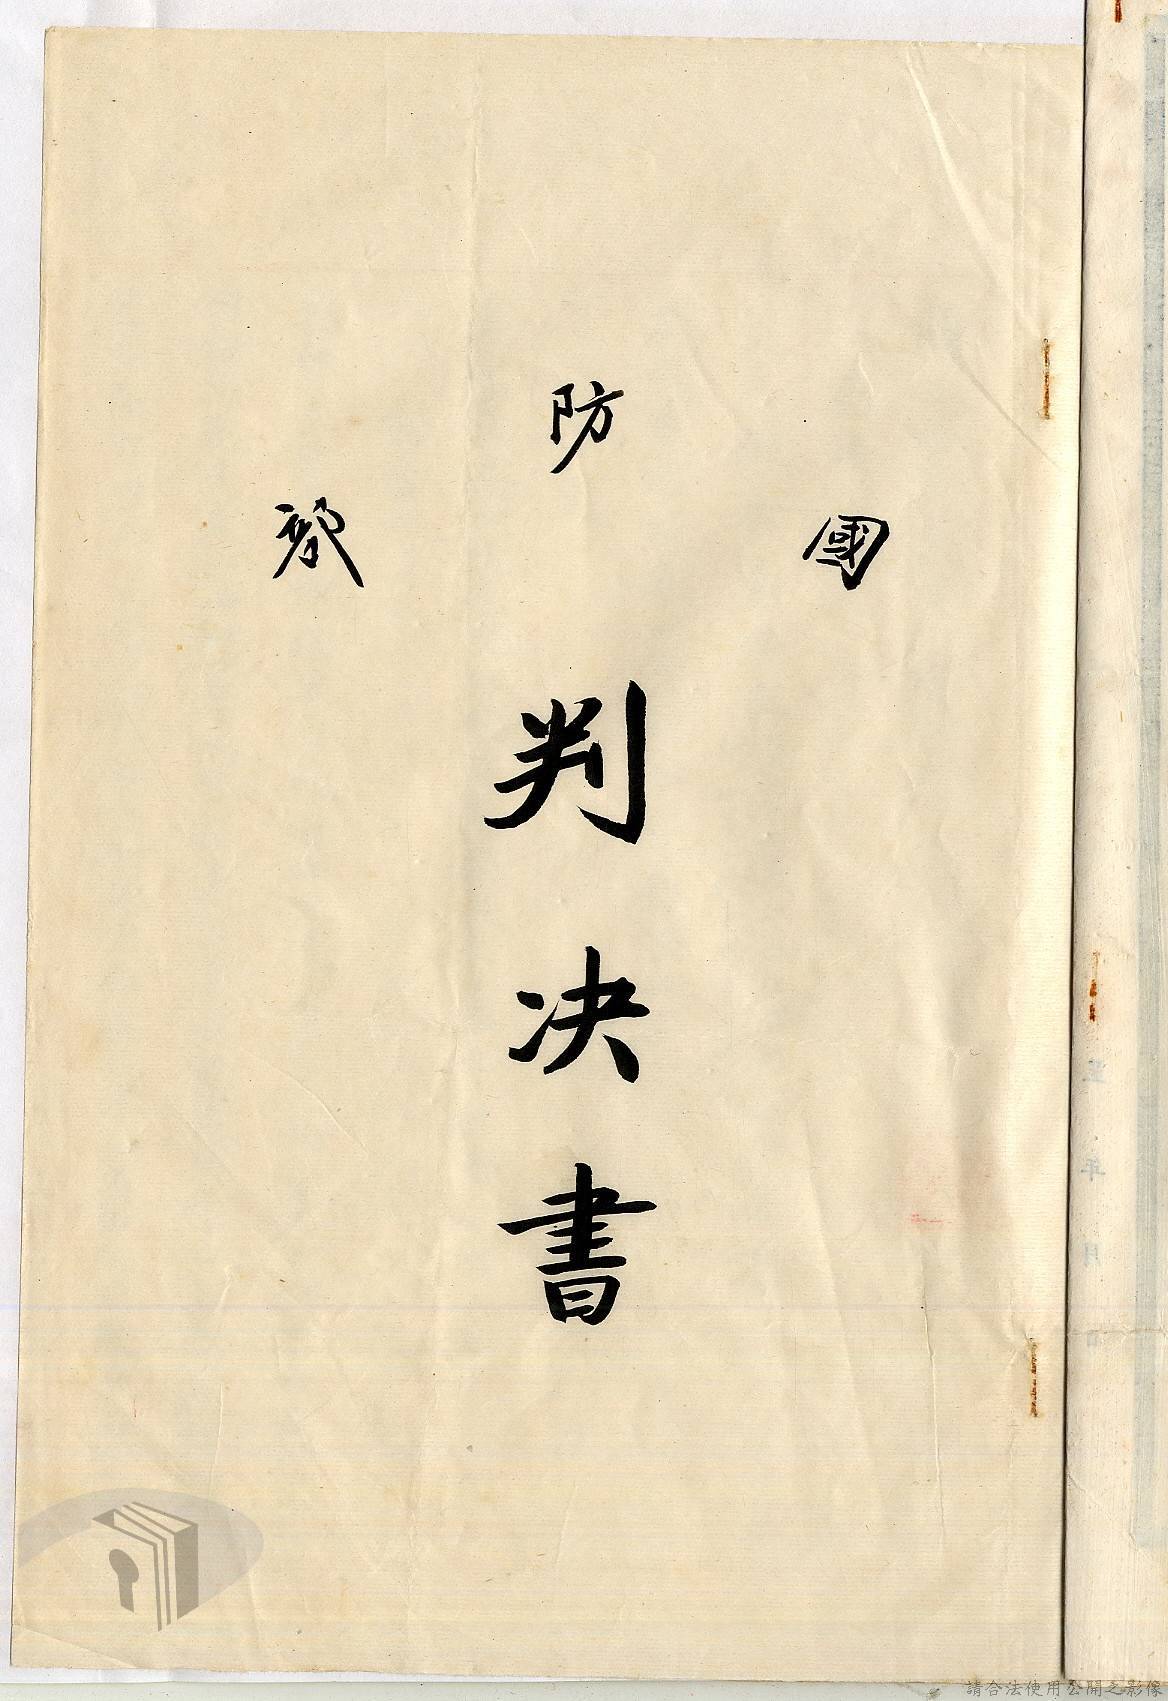 國防部
判决書
至年月日
請合法使用公開之影像